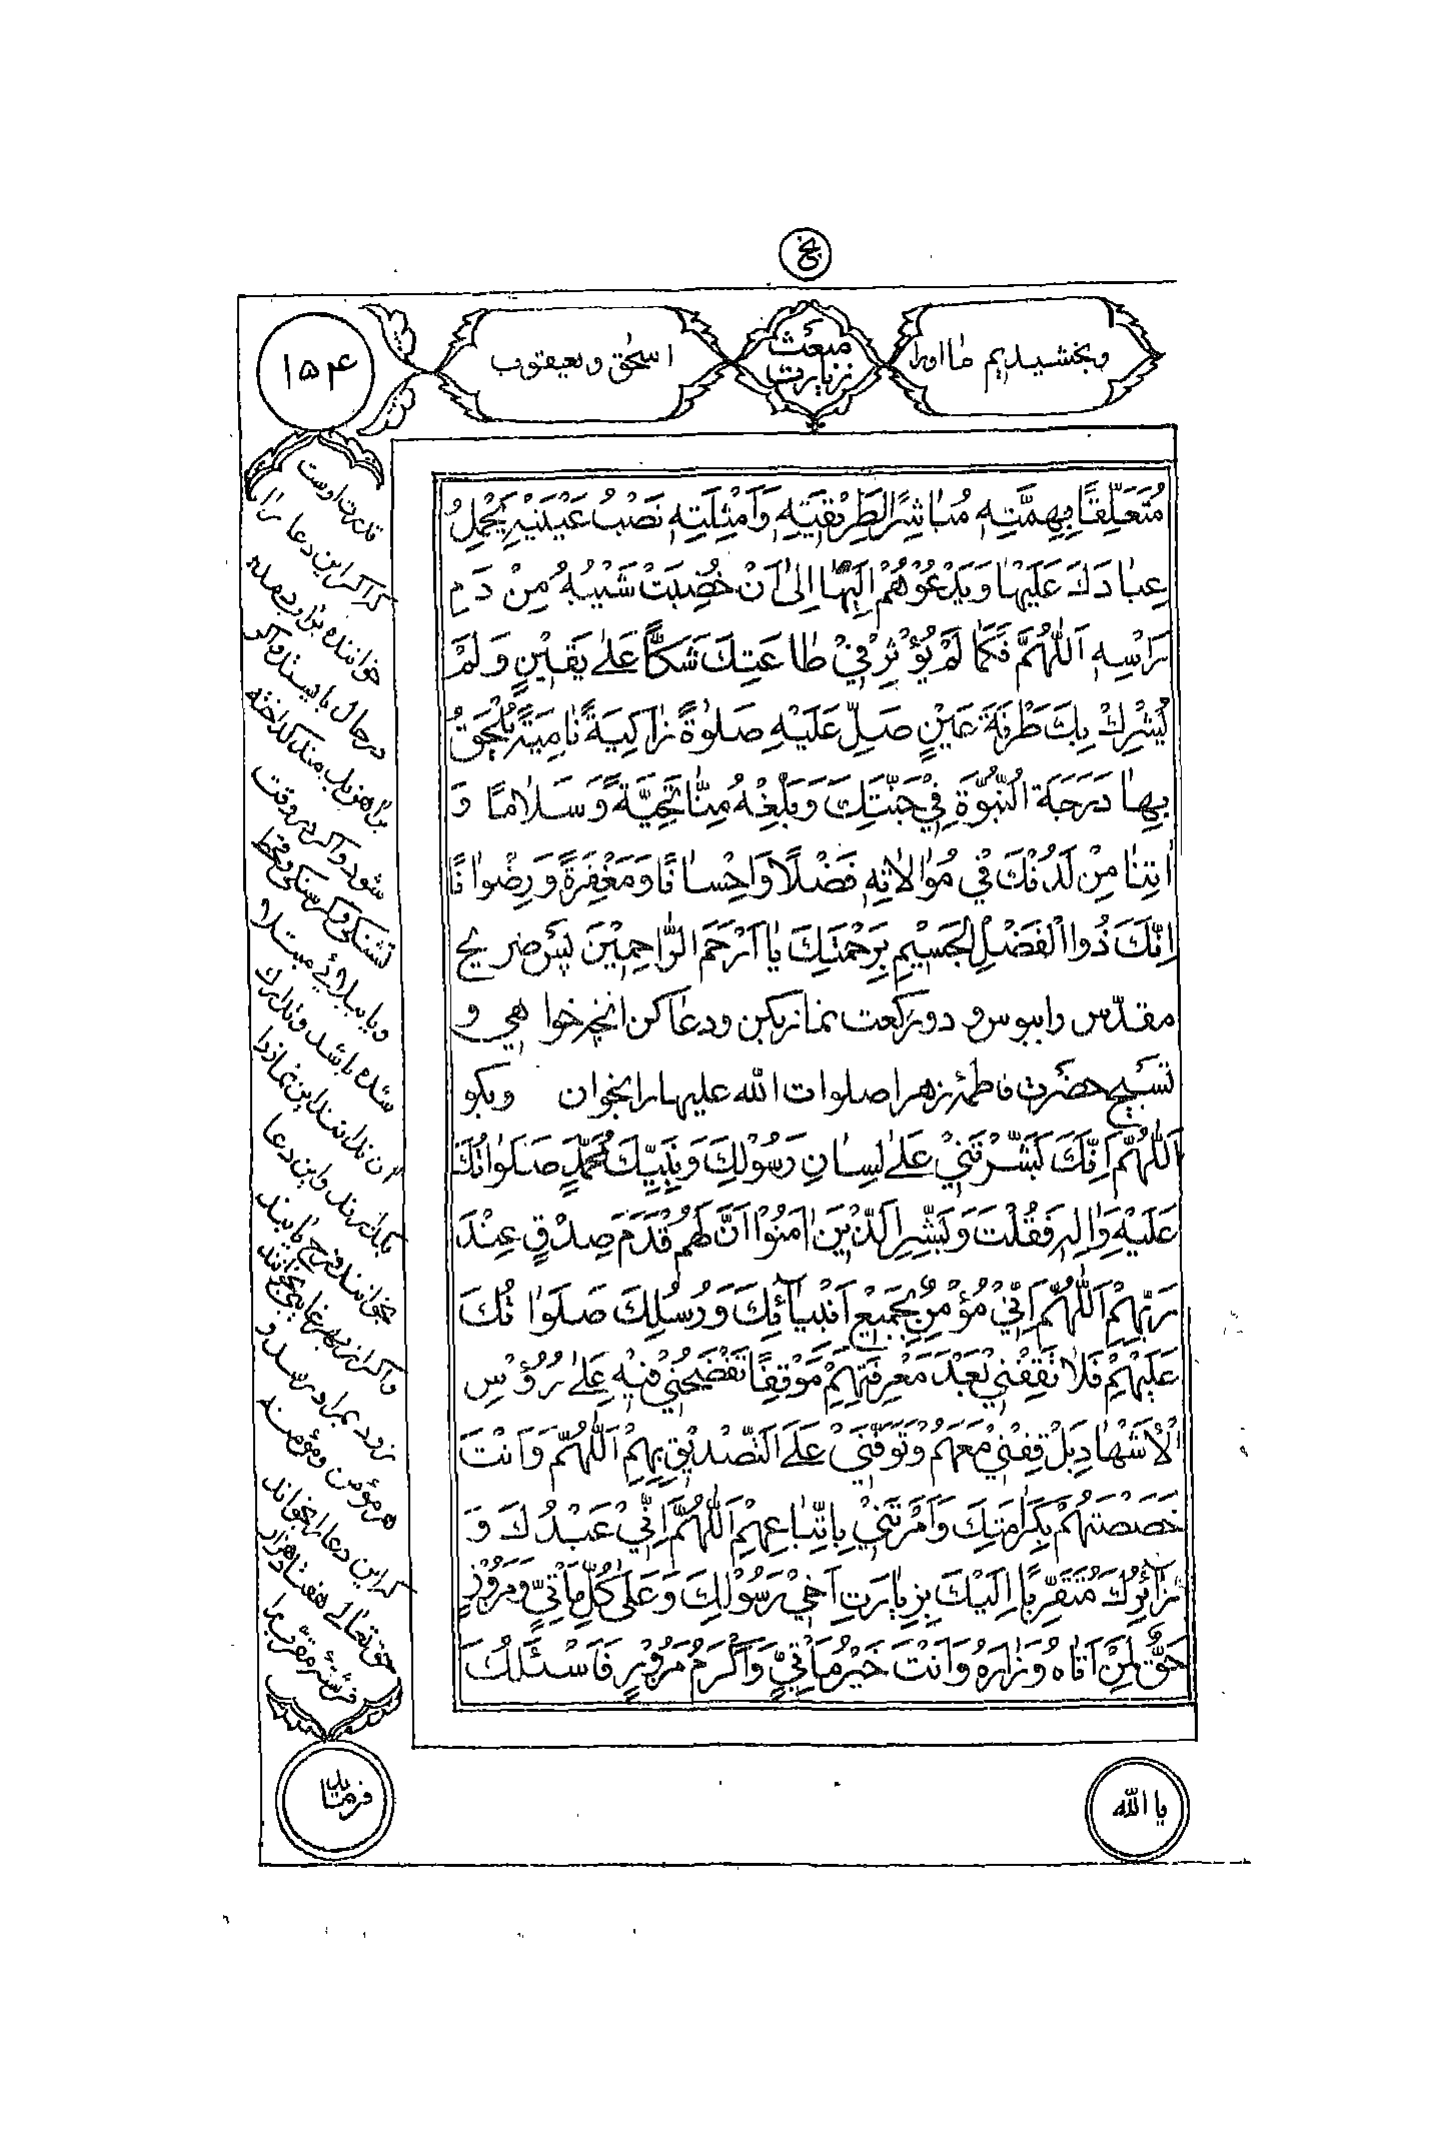 وبخشیدیم ما اورا
مبعث
زیارت
اسحٰق ویعقوب
۱۵۴
مُتَعَلِّقًا بِهِمَّتِهِ مُبٰاشِرًا لِطَرِيْقَتِهِ وَاَمْثِلَتِهِ نَصْبُ عَيْنَيْهِ يَحْمِلُ
عِبٰادَكَ عَلَيْهٰا وَيَدْعُوْهُمْ اِلَيْهٰا اِلىٰ اَنْ خُضِبَتْ شَيْبُهُ مِنْ دَمِ
رَاْسِهِ اَللّٰهُمَّ فَكَمٰا لَمْ يُؤْثِرْ فِيْ طٰاعَتِكَ شَكًّا عَلىٰ يَقِيْنٍ وَلَمْ
يُشْرِكْ بِكَ طَرْفَةَ عَيْنٍ صَلِّ عَلَيْهِ صَلوٰةً زٰاكِيَةً نٰامِيَةً يُلْحَقُ
بِهٰا دَرَجَةَ النُّبُوَّةِ فِيْ جَنَّتِكَ وَبَلِّغْهُ مِنّٰا تَحِيَّةً وَسَلٰامًا وَ
اٰتِنٰا مِنْ لَدُنْكَ فِيْ مُوٰالٰاتِهِ فَضْلًا وَاِحْسٰانًا وَمَغْفِرَةً وَرِضْوٰانًا
اِنَّكَ ذُوالْفَضْلِ الْجَسِيْمِ بِرَحْمَتِكَ يٰا اَرْحَمَ الرّٰاحِمِيْنَ پس ضریح
مقدّس را ببوس و دو رکعت نماز بکن ودعا کن انچه خواهی و
تسبیح حضرت فاطمهٔ زهرا صلوات الله علیها را بخوان وبگو
اَللّٰهُمَّ اِنَّكَ بَشَّرْتَنِيْ عَلىٰ لِسٰانِ رَسُوْلِكَ وَنَبِيِّكَ مُحَمَّدٍ صَلَوٰاتُكَ
عَلَيْهِ وَاٰلِهِ فَقُلْتَ وَبَشِّرِ الَّذِيْنَ اٰمَنُوْا اَنَّ لَهُمْ قَدَمَ صِدْقٍ عِنْدَ
رَبِّهِمْ اَللّٰهُمَّ اِنِّيْ مُؤْمِنٌ بِجَمِيْعِ اَنْبِيٰآئِكَ وَرُسُلِكَ صَلَوٰاتُكَ
عَلَيْهِمْ فَلٰا تَقِفْنِيْ بَعْدَ مَعْرِفَتِهِمْ مَوْقِفًا تَفْضَحُنِيْ فِيْهِ عَلىٰ رُؤُسِ
الْاَشْهٰادِ بَلْ قِفْنِيْ مَعَهُمْ وَتَوَفَّنِيْ عَلَى التَّصْدِيْقِ بِهِمْ اَللّٰهُمَّ وَاَنْتَ
خَصَصْتَهُمْ بِكَرٰامَتِكَ وَاَمَرْتَنِيْ بِاتِّبٰاعِهِمْ اَللّٰهُمَّ اِنِّيْ عَبْدُكَ وَ
زٰآئِرُكَ مُتَقَرِّبًا اِلَيْكَ بِزِيٰارَتِ اَخِيْ رَسُوْلِكَ وَعَلىٰ كُلِّ مَاْتِيٍّ وَمَزُوْرٍ
حَقٌّ لِمَنْ اَتٰاهُ وَزٰارَهُ وَاَنْتَ خَيْرُ مَاْتِيٍّ وَاَكْرَمُ مَزُوْرٍ فَاَسْئَلُكَ
قدرت اوست
که اگر این دعا را
خواننده برابر مرده
در حال بایستد واگر
براهن بدمند گداخته
شود واگر در وقت
تشنگی وگرسنگی وقحط
ویا ببلائی مبتلا
شده باشد وتدارک
آن نداند این نماز را
بگذارند واین دعا
بخوانند فرج یابند
واگر از بهر غایبی بخوانند
زود بمراد رسد و
هر مؤمن ومؤمنه
که این دعا را بخواند
حق تعالی هفتاد هزار
فرشته مقرب را
فرماید
یا الله